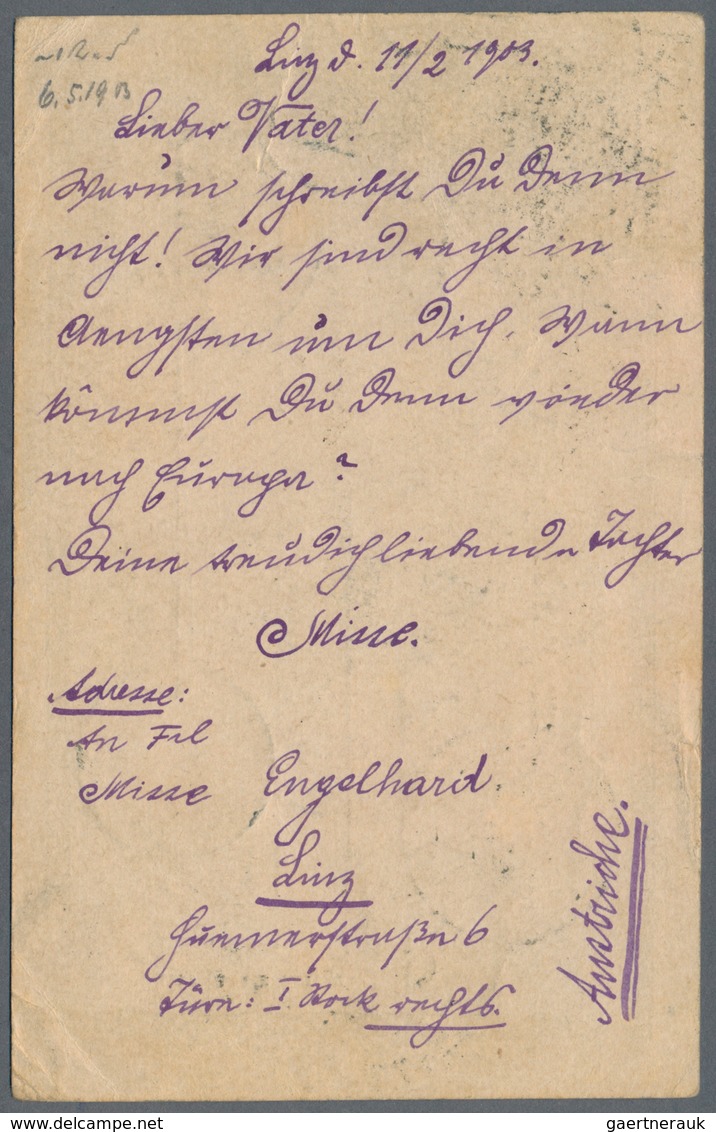 6.5.19 13
Linz d. 11/2 1903.
Lieber Vater!
Warum schreibst Du denn
nicht! Wir sind recht in
Aengsten um Dich. Wann
kommst Du denn wieder
nach Europa?
Deine treudichliebende Tochter
Misse.
Adresse:
An Frl
Misse Engelhard.
Linz
Huemerstraße 6
Türe: I Stock rechts.
Austriche.
gaertnerauk